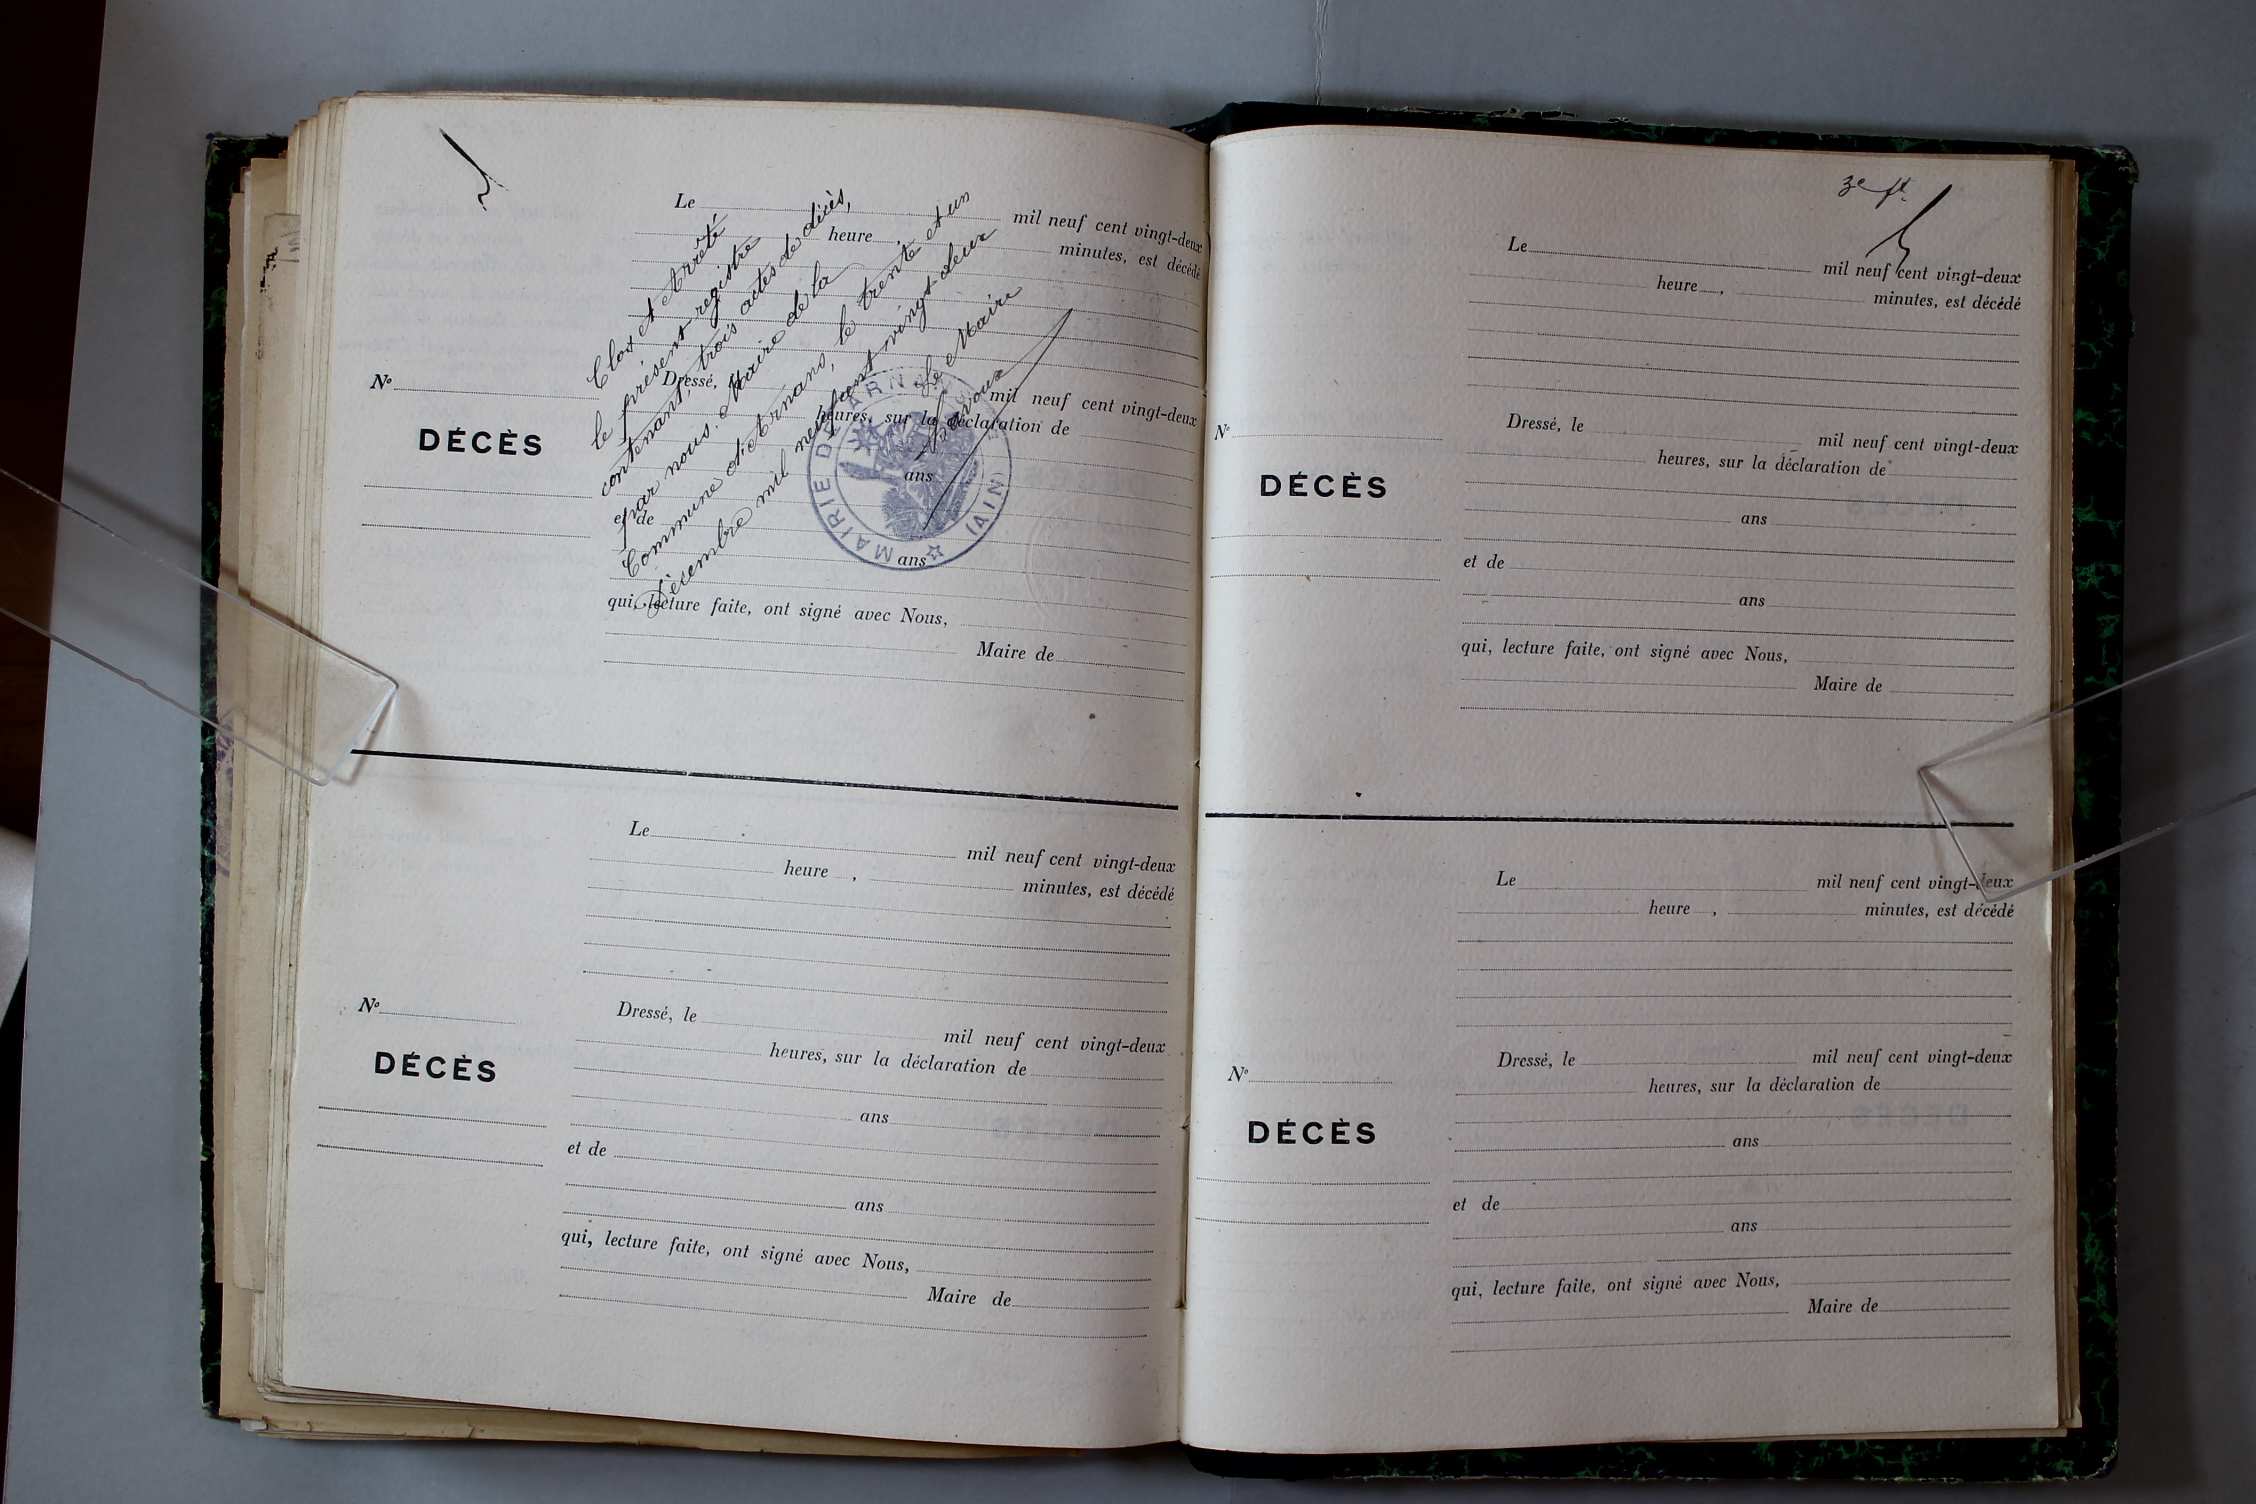 Le mil neuf cent vingt-deux
heure , minutes, est décédé
Clos et Arrêté
le présent registre
contenant, trois actes de décès,
par nous. Maire de la
Commune d'Arnans, le trente et un
Décembre mil neuf cent vingt deux
Le Maire
Nº
DÉCÈS
Dressé, mil neuf cent vingt-deux
heures, sur la déclaration de
ans
et de
ans
MAIRIE D'ARNANS (AIN)
qui, lecture faite, ont signé avec Nous,
Maire de
Le mil neuf cent vingt-deux
heure , minutes, est décédé
Nº
DÉCÈS
Dressé, le mil neuf cent vingt-deux
heures, sur la déclaration de
ans
et de
ans
qui, lecture faite, ont signé avec Nous,
Maire de
3e ft.
Le mil neuf cent vingt-deux
heure , minutes, est décédé
Nº
DÉCÈS
Dressé, le mil neuf cent vingt-deux
heures, sur la déclaration de
ans
et de
ans
qui, lecture faite, ont signé avec Nous,
Maire de
Le mil neuf cent vingt-deux
heure , minutes, est décédé
Nº
DÉCÈS
Dressé, le mil neuf cent vingt-deux
heures, sur la déclaration de
ans
et de
ans
qui, lecture faite, ont signé avec Nous,
Maire de